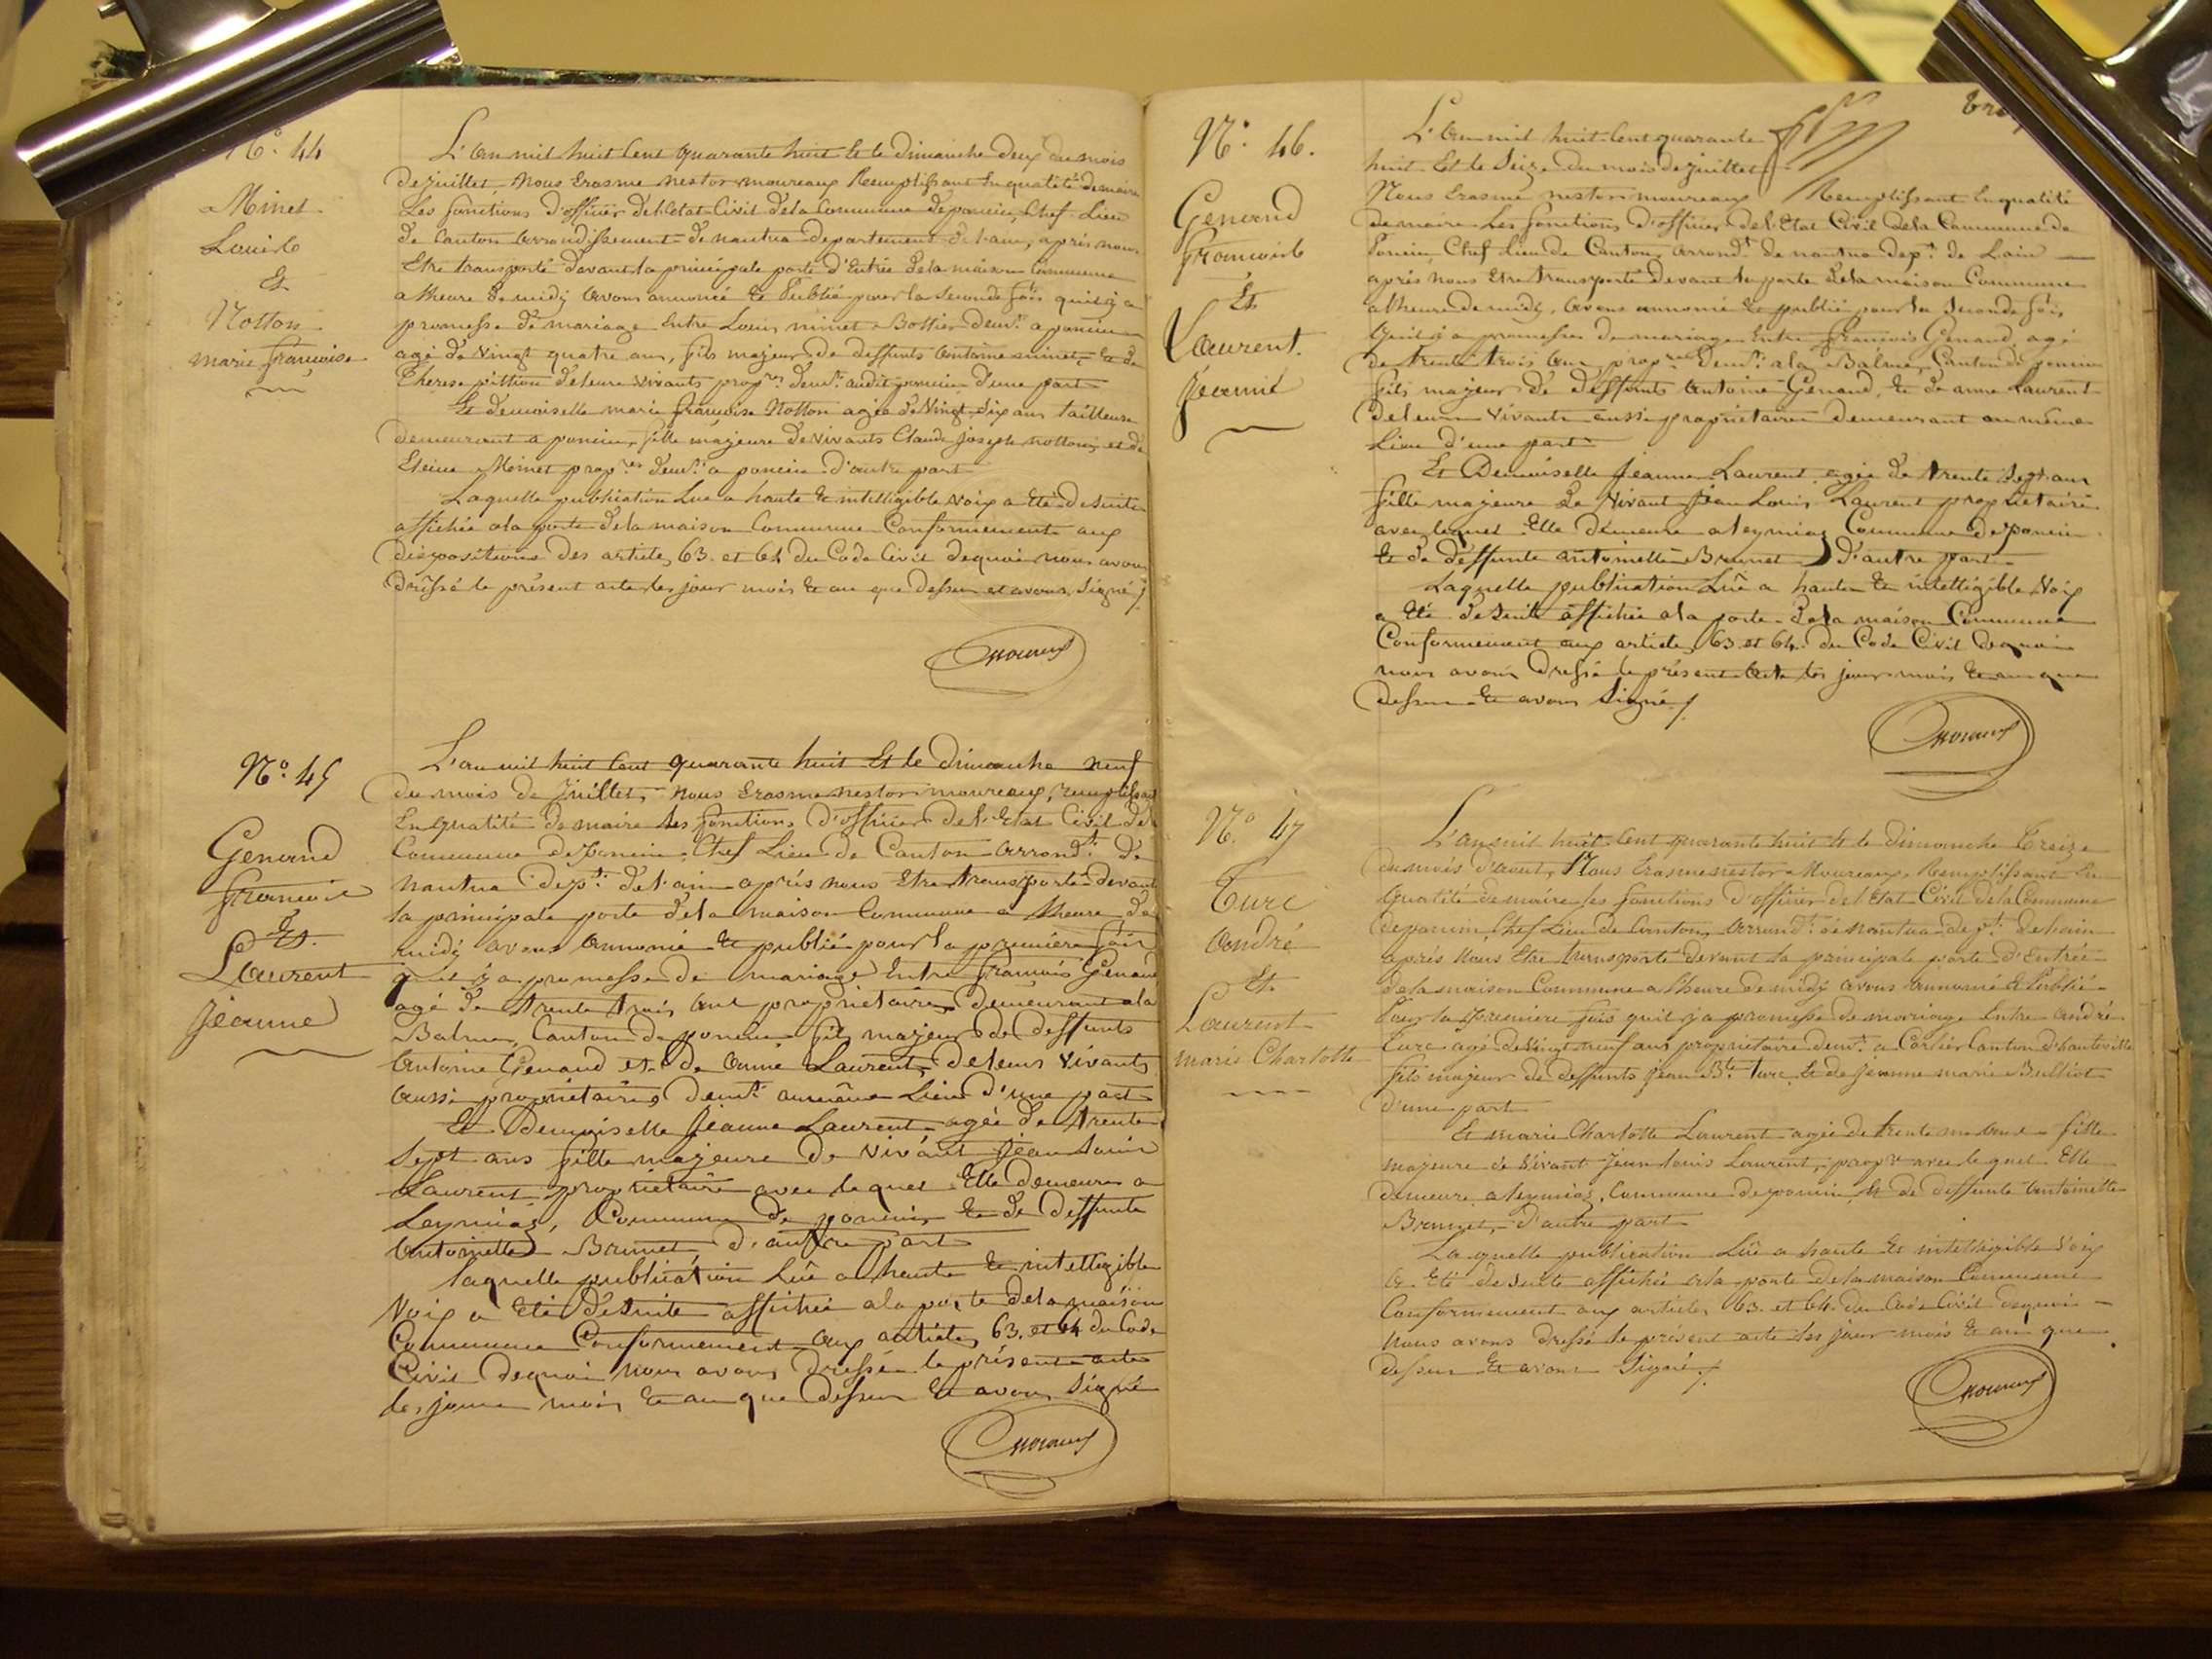 N°. 44
Minet
Louis
Et
Notton
marie françoise
L'an mil huit Cent quarante huit Et le Dimanche deux du mois
de juillet, Nous Erasme nestor moureaux Remplissant En qualité de maire
Les fonctions d'officier de l'Etat-Civil de la Commune de poncin, Chef Lieu
de Canton arrondissement de nantua departement de l'ain, après nous
Etre transporté devant la principale porte d'Entrée de la maison Commune
a l'heure de midy avons annoncé & Publié pour la seconde fois qu'il y a
promesse de mariage Entre Louis minet Bottier demt. a poncin
agé de Vingt quatre ans, fils majeur de deffunts antoine minet, & de
Therese pittion de leurs vivants propres. demt. audit poncin d'une part
Et demoiselle marie françoise Notton agée de Vingt six ans tailleuse
demeurant a poncin, fille majeure de vivants Claude joseph notton, et de
Minet propres. demt. a poncin d'autre part
Laquelle publication Lue a haute & intelligible voix a Eté de suite
affichée a la porte de la maison Commune Conformement aux
dispositions des articles 63. et 64 du Code Civil de quoi nous avons
Dressé le présent acte les jour mois & an que dessus et avons signé
Moureux
N°. 45
Genand
francois
Et.
Laurent
Jeanne
L'an mil huit Cent quarante huit Et le Dimanche neuf
du mois de Juillet, Nous Erasme nestor moureaux, remplissant
En qualité de maire les fonctions d'officier de l'Etat Civil de la
Commune de Poncin, Chef Lieu de Canton arrondt. de
nantua dept. de l'ain après nous Etre transporté devant
la principale porte de la maison Commune a l'heure de
midy avons annoncé & publié pour la première fois
qu'il y a promesse de mariage Entre françois Genand
agé de trente trois ans propriétaire demeurant a la
Balme, Canton de poncin fils majeur de deffunts
Antoine Genand et de anne Laurent, de leurs vivants
aussi propriétaires demt. au même Lieu d'une part
Et Demoiselle Jeanne Laurent agée de trente
Sept ans fille majeure de vivant Jean Louis
Laurent propriétaire avec lequel Elle demeure a
Leymiaz, Commune de poncin, & de deffunte
Antoinette Brunet d'autre part
laquelle publication Lûe a haute & intelligible
Voix a Eté de suite affichée a la porte de la maison
Commune Conformement aux articles 63. et 64 du Code
Civil de quoi nous avons Dressé le présent acte
les jour mois & an que dessus & avons signé
Moureux
N°. 46.
Genand
francois
Et
Laurent.
Jeanne
L'an mil huit Cent quarante
huit Et le Seize du mois de juillet
Nous Erasme nestor moureaux Remplissant En qualité
de maire Les fonctions d'officier de l'Etat Civil de la Commune de
Poncin, Chef lieu de Canton, arrondt. de nantua dept. de Lain
après nous Etre transporté devant la porte de la maison Commune
a l'heure de midy, avons annoncé & publié pour la seconde fois
qu'il y a promesses de mariage Entre françois Genand, agé
de trente trois ans propre. demt. a la Balme, Canton de poncin
fils majeur de deffunts antoine Genand, & de anne Laurent
de leurs vivants aussi propriétaires demeurant au même
Lieu d'une part
Et Demoiselle Jeanne Laurent agée de trente Sept ans
fille majeure de Vivant Jean Louis Laurent propriétaire
avec lequel Elle demeure a leymiaz Commune de poncin
& de deffunte antoinette Brunet d'autre part
Laquelle publication Lûe a haute & intelligible Voix
a Eté de suite affichée a la porte de la maison Commune
Conformement aux articles 63 et 64. du Code Civil de quoi
nous avons Dressé le présent acte les jour mois & an que
dessus & avons signé
Moureux
N°. 47
Turc
andré
Et.
Laurent
marie Charlotte
L'an mil huit Cent quarante huit & le Dimanche Treize
du mois d'aout, Nous Erasme nestor Moureaux, Remplissant En
qualité de maire les fonctions d'officier de l'Etat Civil de la Commune
de poncin, Chef Lieu de Canton, Arrondt. de nantua dept. de Lain
après Nous Etre transporté devant la principale porte d'Entrée
de la maison Commune a l'heure de midy avons annoncé & Publié
Pour la première fois qu'il y a promesse de mariage Entre andré
Turc agé de Vingt neuf ans propriétaire demt. a Corlier Canton d'hauteville
fils majeur de deffunts jean Bte. turc & de jeanne marie Bulliot
d'une part
Et marie Charlotte Laurent agée de trente ans fille
majeure de Vivant Jean Louis Laurent, propre avec lequel Elle
demeure a leymiaz, Commune de poncin, & de deffunte antoinette
Brunet, d'autre part
La quelle publication Lûe a haute & intelligible Voix
a Eté de suite affichée a la porte de la maison Commune
Conformement aux articles 63. et 64. du Code Civil de quoi
Nous avons dressé le présent acte les jour mois & an que
dessus & avons Signé
Moureux